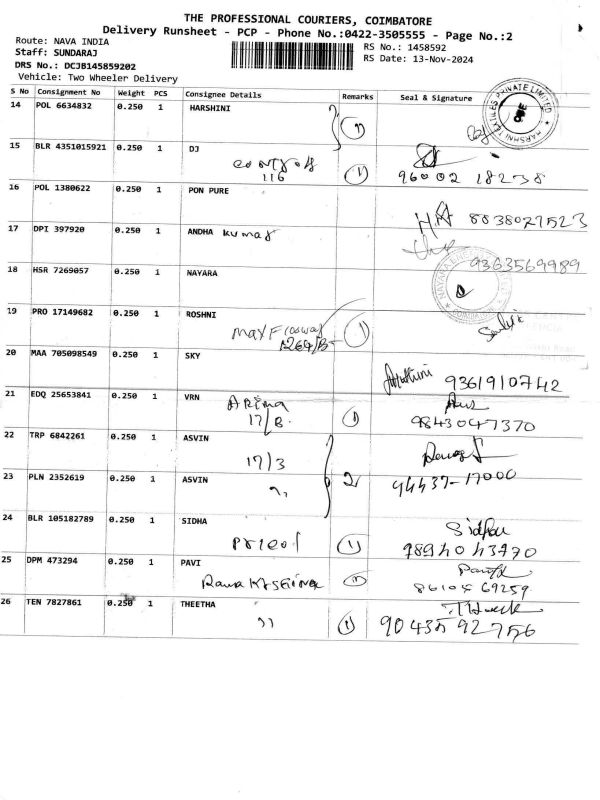 THE PROFESSIONAL COURIERS, COIMBATORE
Delivery Runsheet - PCP - Phone No.:0422-3505555 - Page No.:2
Route: NAVA INDIA
RS No.: 1458592
Staff: SUNDARAJ
RS Date: 13-Nov-2024
DRS No.: DCJB145859202
Vehicle: Two Wheeler Delivery
S No Consignment No Weight PCS Consignee Details Remarks Seal & Signature
14 POL 6634832 0.250 1 HARSHINI 1
15 BLR 4351015921 0.250 1 DJ
116 1 96002 18238
16 POL 1380622 0.250 1 PON PURE
8838027523
17 DPI 397920 0.250 1 ANDHA Kumar
9363569989
18 HSR 7269057 0.250 1 NAYARA
19 PRO 17149682 0.250 1 ROSHNI
1
20 MAA 705098549 0.250 1 SKY
9361910742
21 EDQ 25653841 0.250 1 VRN
17/B. 1 9843047370
22 TRP 6842261 0.250 1 ASVIN
17/3
23 PLN 2352619 0.250 1 ASVIN 2 94437-17000
,,
24 BLR 105182789 0.250 1 SIDHA
1 9894043770
25 DPM 473294 0.250 1 PAVI
1 86108 69259
26 TEN 7827861 0.250 1 THEETHA
,, 1 90435 92756